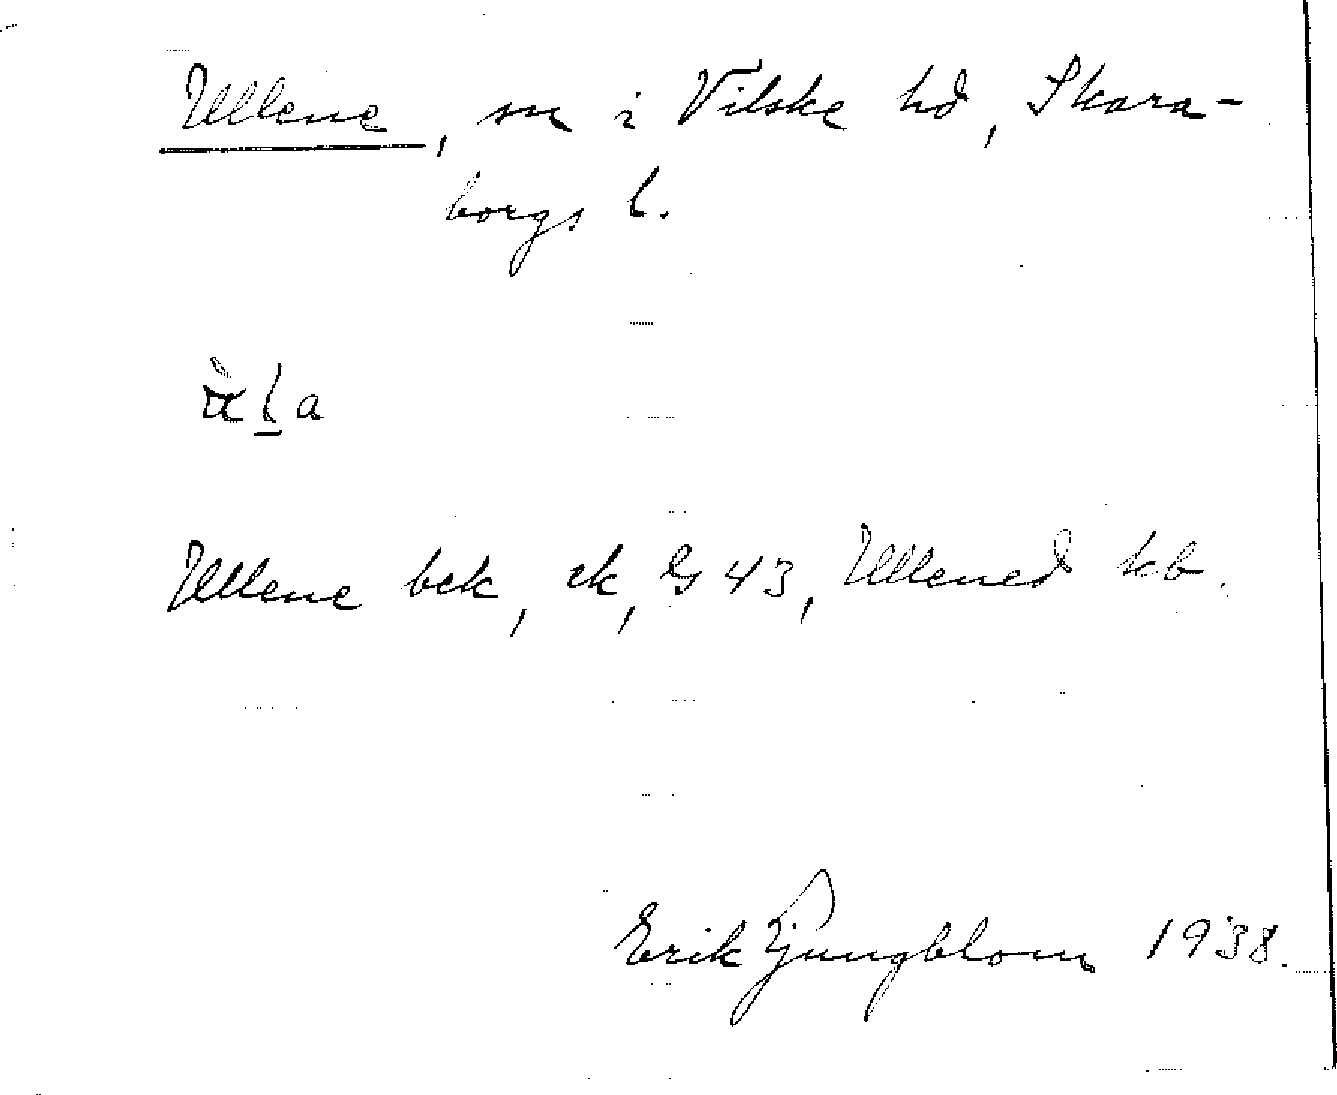 Ullene, sn i Vilske hd, Skara-
borgs l.
Ullene bek, ek, G 43, Ullened kb.
Erik Ljungblom 1938.